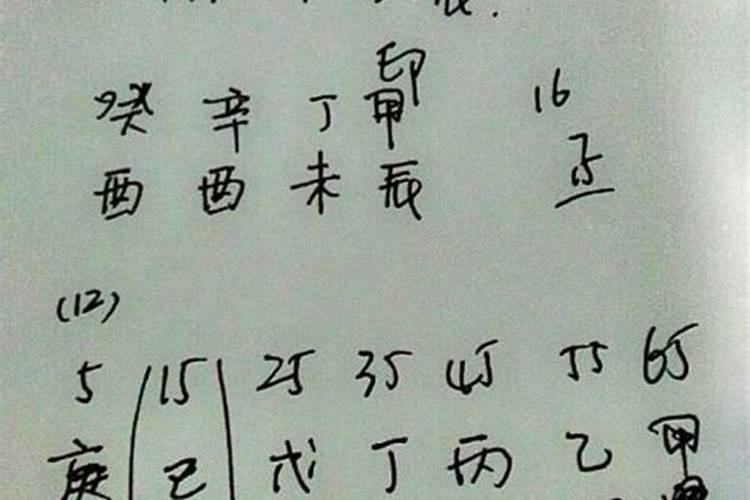 印
癸 辛 丁 甲 16
酉 酉 未 辰 75
(12)
5 15 25 35 45 55 65
庚 己 戊 丁 丙 乙 甲